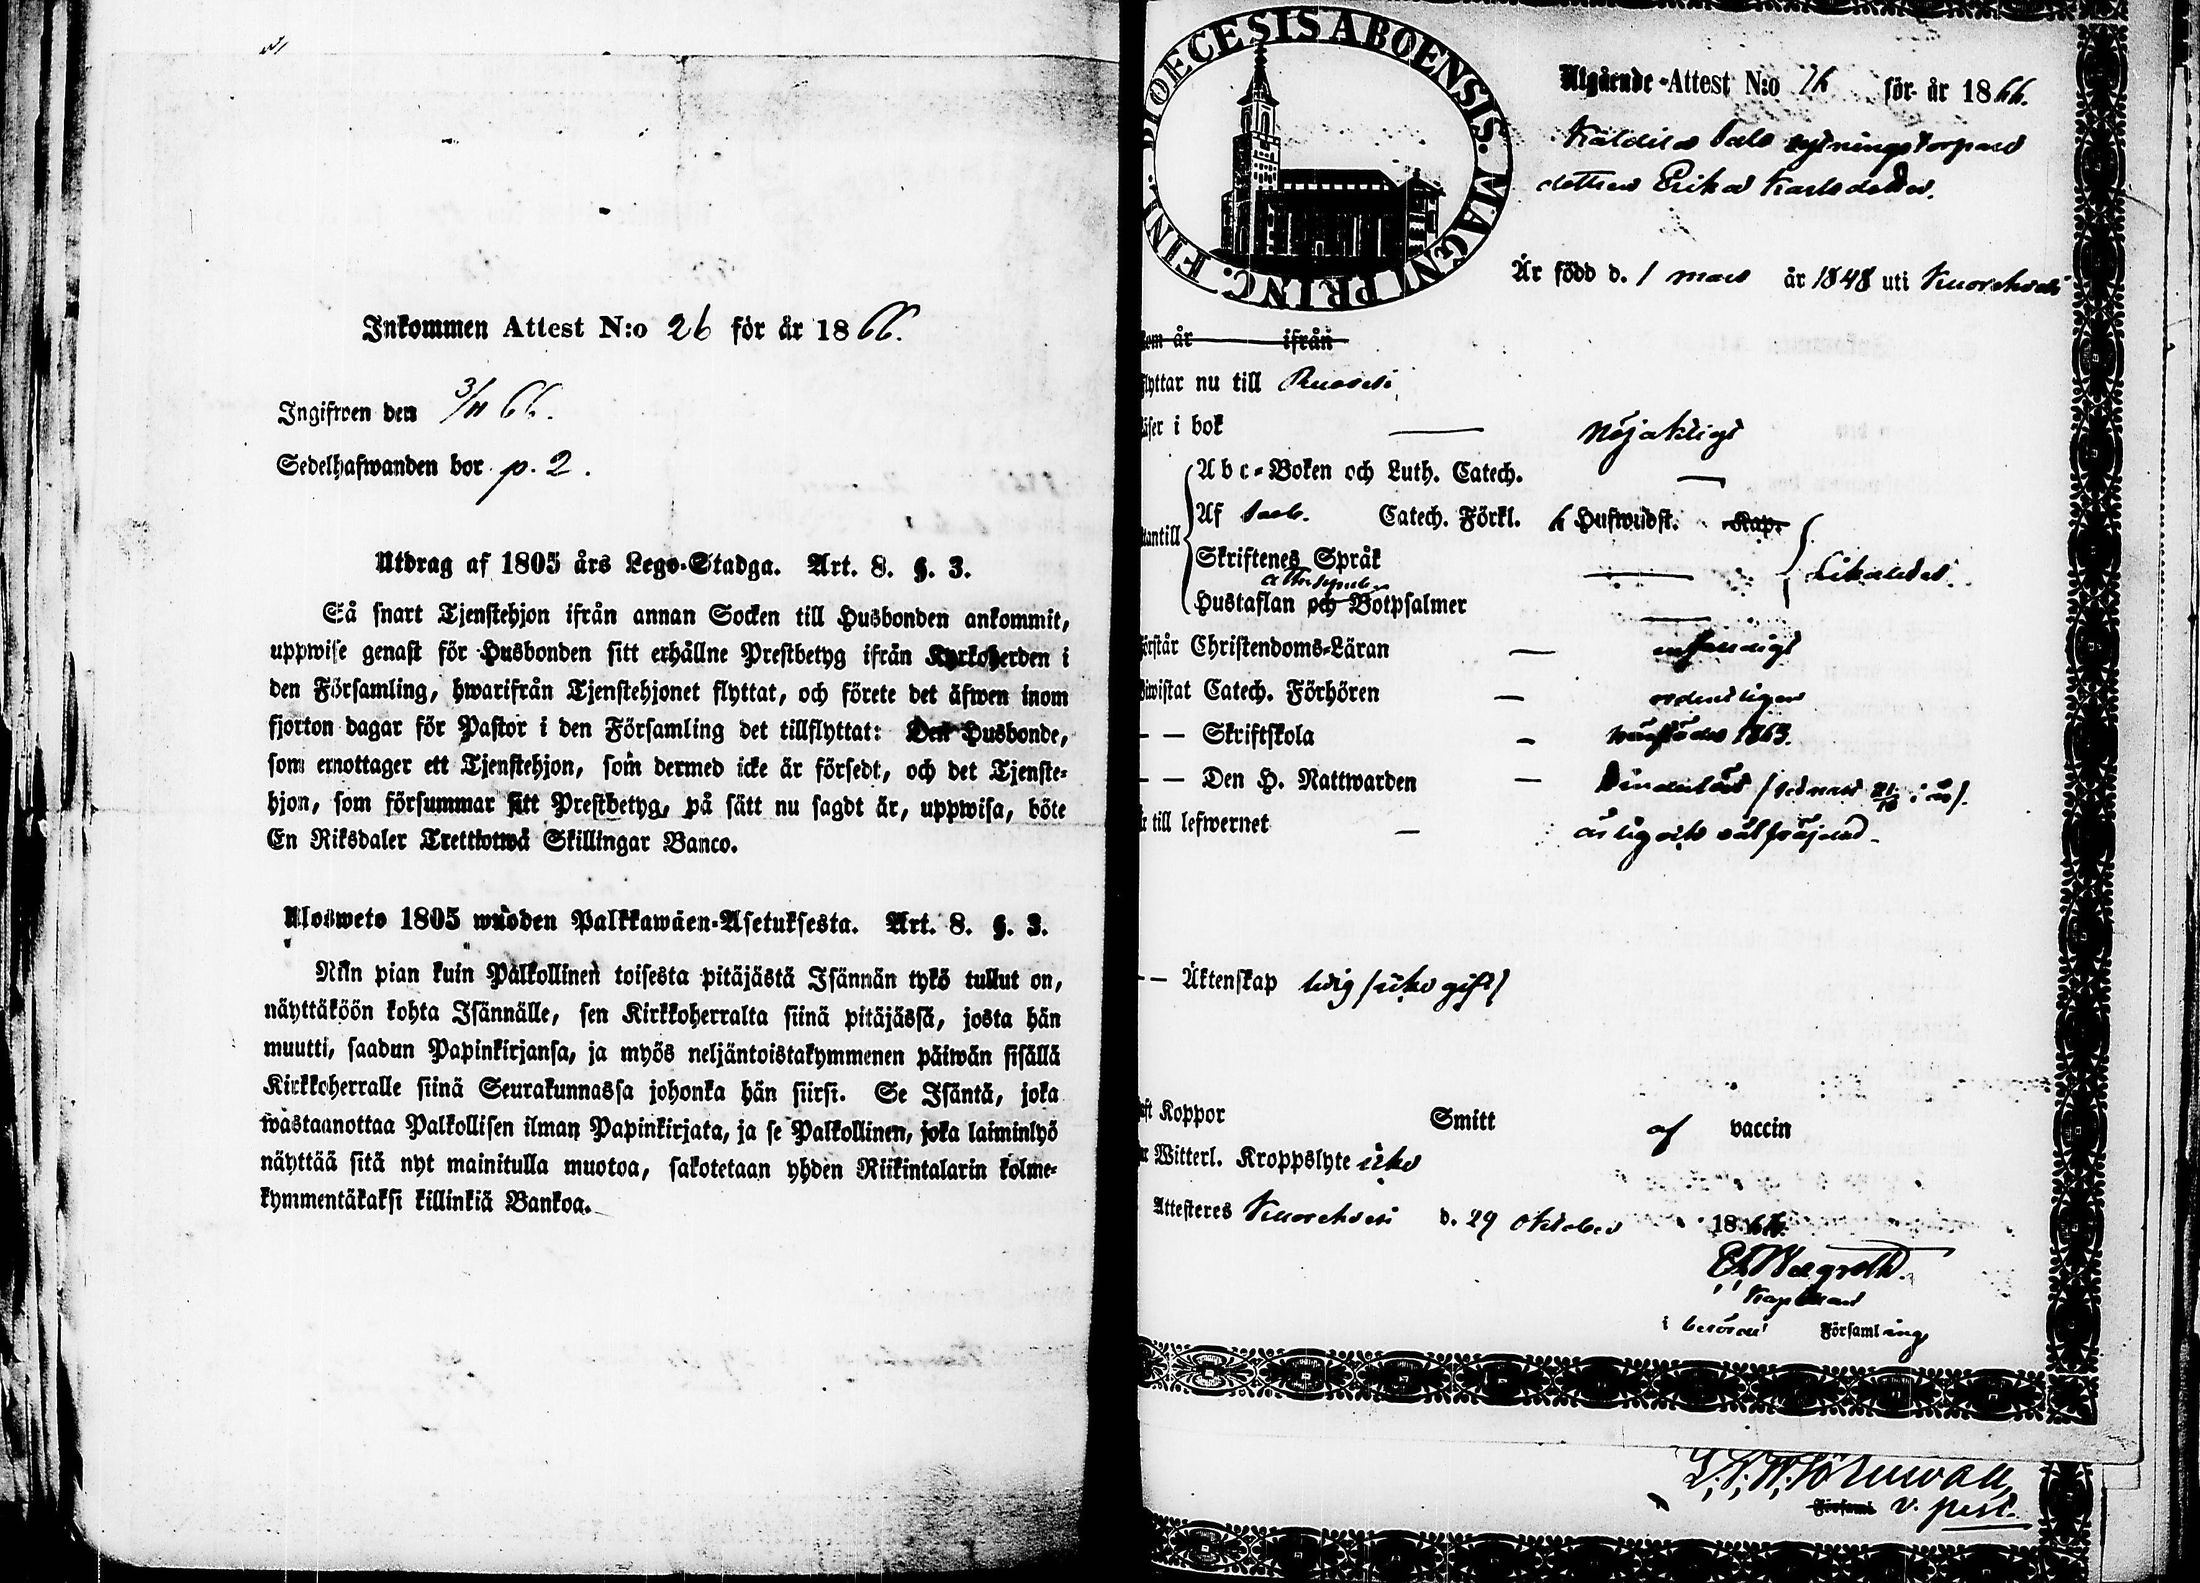 Inkommen Attest N:o 26 för år 1866.
Ingifwen den 3/11 66.
Sedelhafwanden bor p. 2.
Utdrag af 1805 års Lego-Stadga. Art. 8. §. 3.
Så snart Tjenstehjon ifrån annan Socken till Husbonden ankommit,
uppwise genast för Husbonden sitt erhållne Prestbetyg ifrån Kyrkoherden i
den Församling, hwarifrån Tjenstehjonet flyttat, och förete det äfwen inom
fjorton dagar för Pastor i den Församling det tillflyttat: Den Husbonde,
som emottager ett Tjenstehjon, som dermed icke är försedt, och det Tjenste-
hjon, som försummar sitt Prestbetyg, på sätt nu sagdt är, uppwisa, böte
En Riksdaler Trettiotwå Skillingar Banco.
Ulosweto 1805 wuoden Palkkawäen-Asetuksesta. Art. 8. §. 3.
Niin pian kuin Palkollinen toisesta pitäjästä Isännän tykö tullut on,
näyttäköön kohta Isännälle, sen Kirkkoherralta siinä pitäjässä, josta hän
muutti, saadun Papinkirjansa, ja myös neljäntoistakymmenen päiwän sisällä
Kirkkoherralle siinä Seurakunnassa johonka hän siirsi. Se Isäntä, joka
wastaanottaa Palkollisen ilman Papinkirjata, ja se Palkollinen, joka laiminlyö
näyttää sitä nyt mainitulla muotoa, sakotetaan yhden Riikintalarin kolme-
kymmentäkaksi killinkiä Bankoa.
DIOECESIS ABOENSIS. MAGNI PRINC. FINL.
Utgående-Attest N:o 76 för år 1866.
nytningstorpare
dottren Erika Karlsdotter.
Är född d. 1 mars år 1848 uti Kuorehvesi
kom år ifrån
flyttar nu till Ruovesi
läser i bok — nöjaktigt
Abc-Boken och Luth. Catech. —
utantill Af Catech. Förkl. 6 Hufwudst. Kap.
Skriftenes Språk — Likaledes.
Athan. symbolum
Hustaflan och Botpsalmer —
förstår Christendoms-Läran — enfaldigt
biwistat Catech. Förhören — ordentligen
— — Skriftskola — 1863.
— — Den H. Nattwarden — (sednast 21/10 i år).
är till lefwernet — ärlig och välfräjdad.
— — Äktenskap ledig (icke gift)
haft Koppor Smitt af vaccin
har Witterl. Kroppslyte icke
Attesteres Kuorehvesi d. 29 oktober 1866.
Wegreth.
Kapellan
i berörde Församling
v. past.